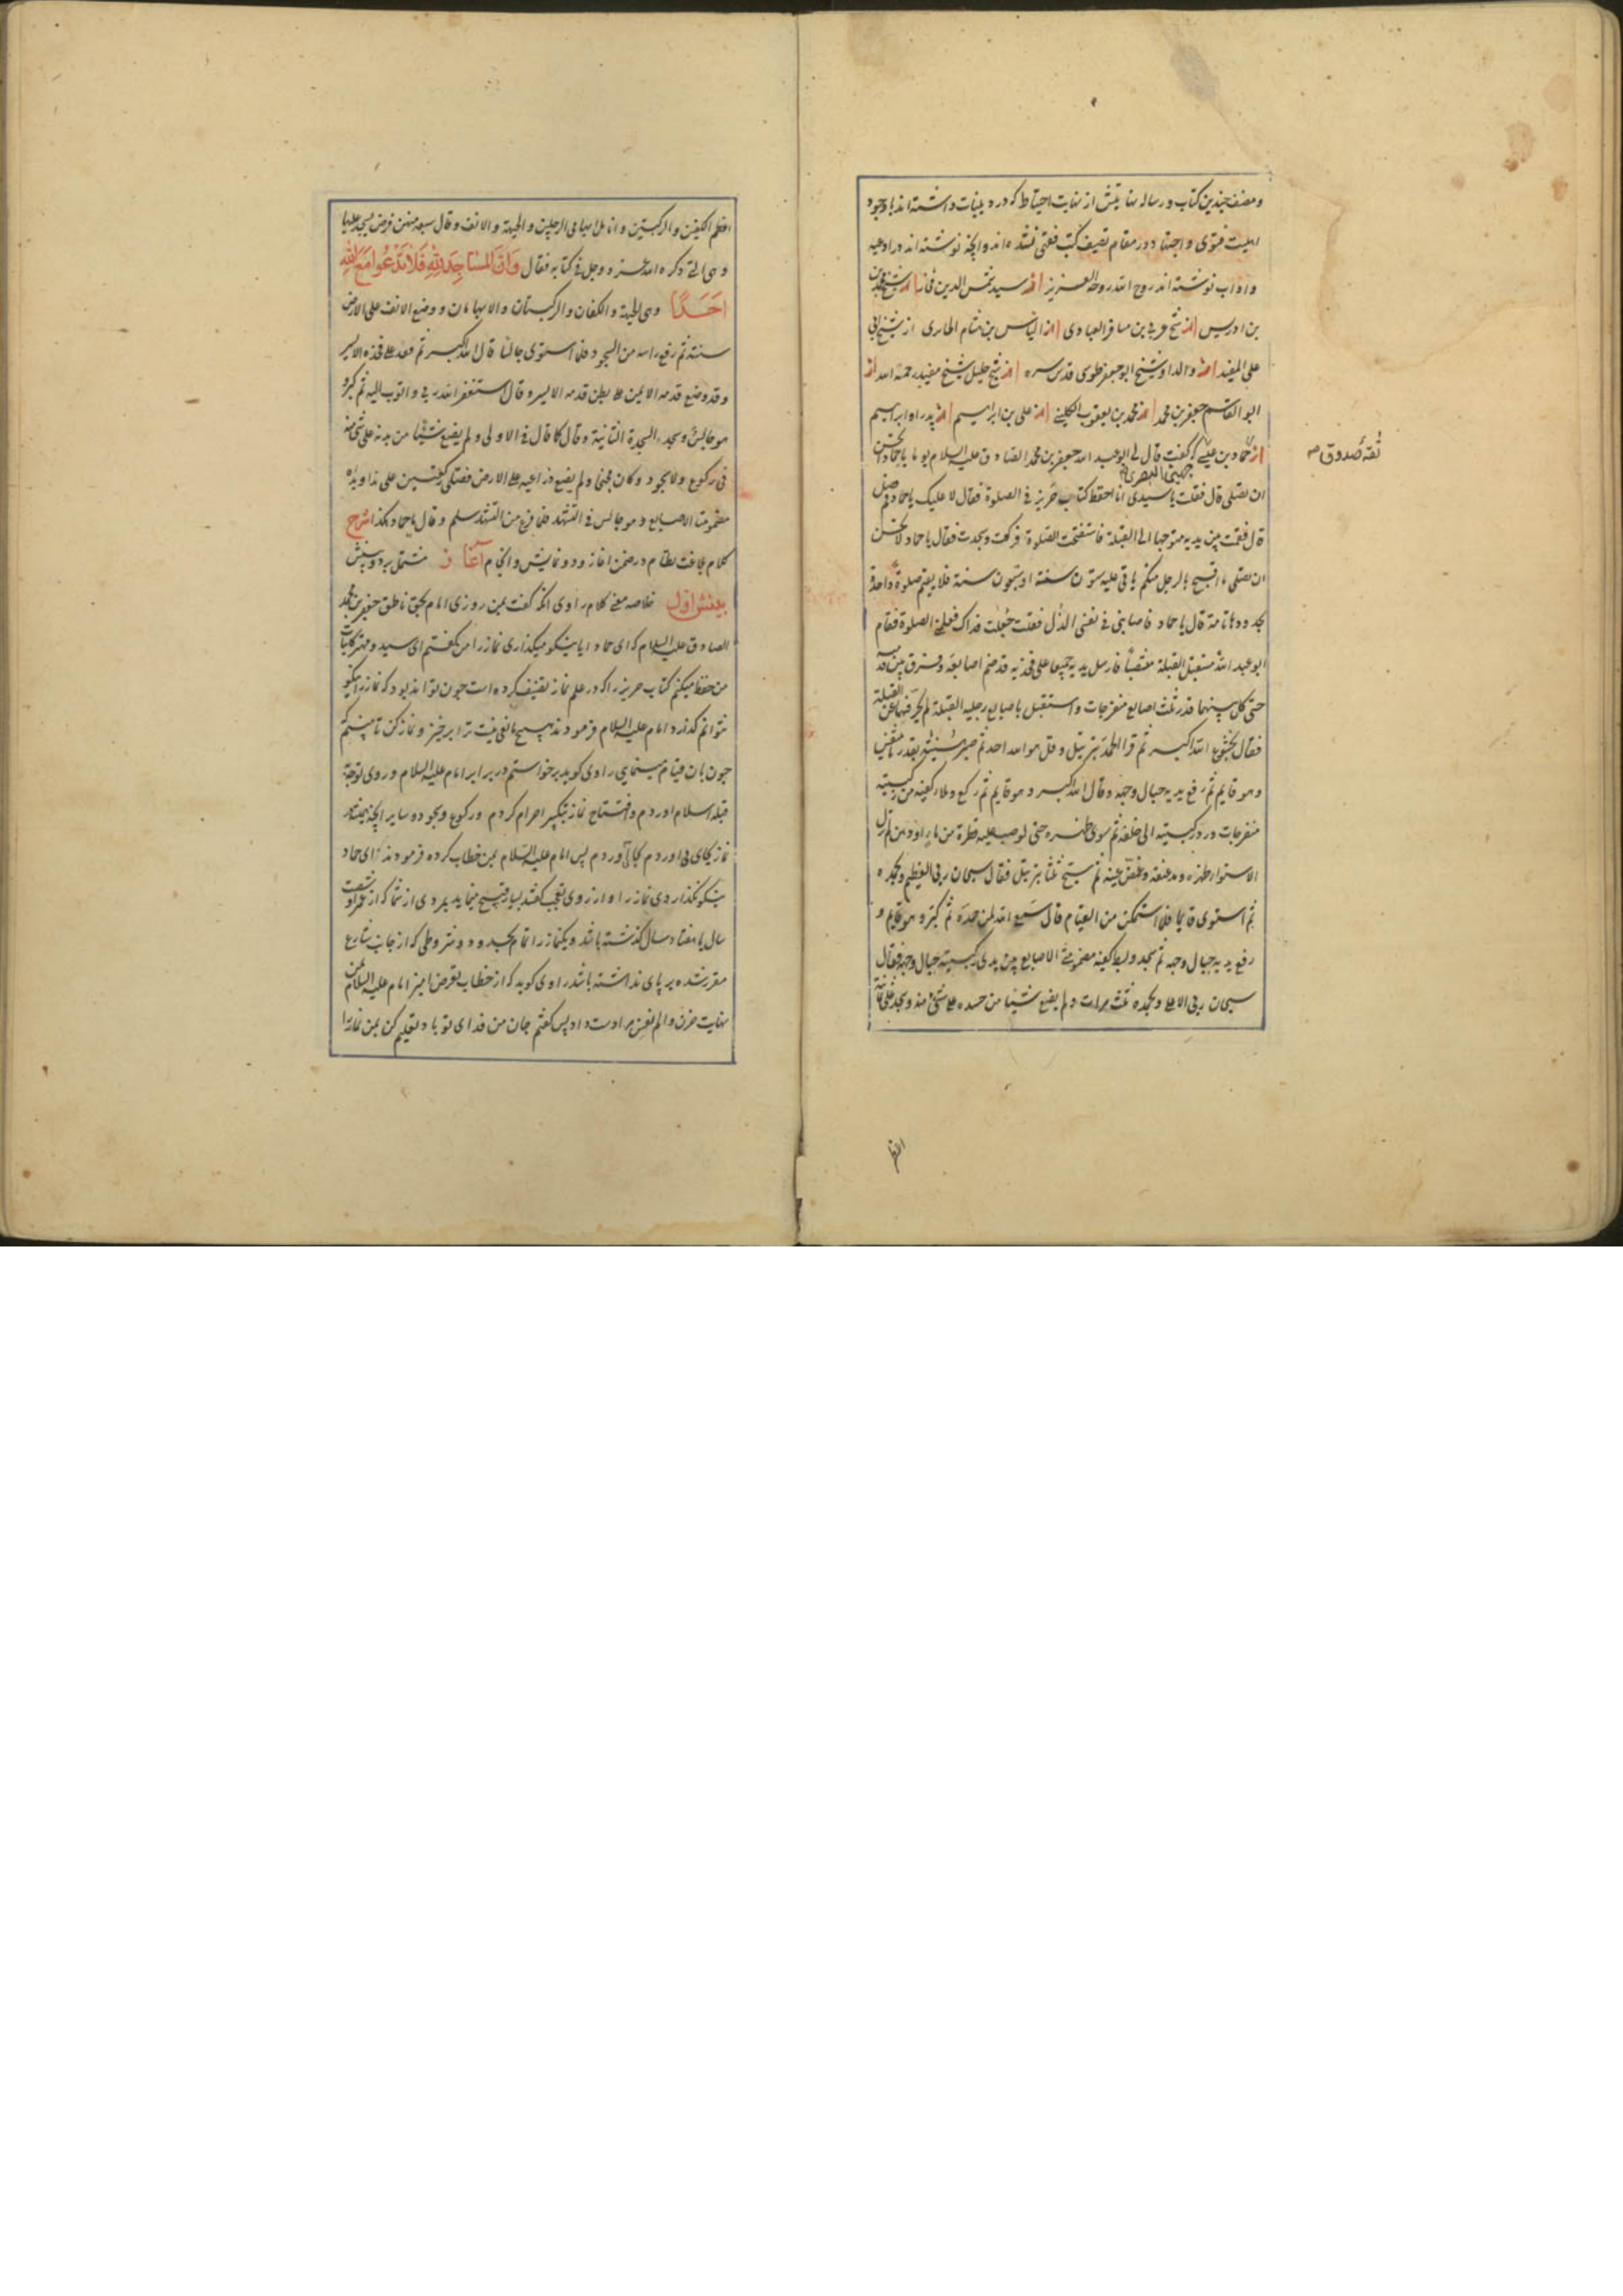 و مصنف چندین کتاب و رساله بنابیتش از نهایت احتیاط که در دینیات داشته اند با وجود
اهلیت فتوی و اجتهاد در مقام تصنیف کتب فقهی نشده اند و آنچه نوشته اند در ادعیه
و اداب نوشته اند روح الله روحه العزیز از سید شمس الدین فخار از شیخ محمد بن
بن ادریس از شیخ عربی بن مسافر العبادی از الیاس بن هشام الحاری از شیخ ابی
علی المفید از والد او شیخ ابو جعفر طوسی قدس سره از شیخ جلیل شیخ مفید رحمة الله از
ابو القاسم جعفر بن محمد از محمد بن یعقوب الکلینی از علی بن ابراهیم از پدر او ابراهیم
از حماد بن عیسی که گفت قال لی ابو عبد الله جعفر بن محمد الصادق علیه السلام یوما یا حماد اتحسن
جهینی البصری
ثقه صدوق صه
ان تصلی قال فقلت یا سیدی انا احفظ کتاب حریز فی الصلوة فقال لا علیک یا حماد قم صل
قال فقمت بین یدیه متوجها الی القبلة فاستفتحت الصلوة فرکعت و سجدت فقال یا حماد لا تحسن
ان تصلی ما اقبح بالرجل منکم یاتی علیه ستون سنة او سبعون سنة فلا یقیم صلوة واحدة
بحدودها تامة قال حماد فاصابنی فی نفسی الذل فقلت جعلت فداک فعلمنی الصلوة فقام
ابو عبد الله مستقبل القبلة منتصبا فارسل یدیه جمیعا علی فخذیه قد ضم اصابعه و فرق بین قدمیه
حتی کان بینهما قدر ثلث اصابع منفرجات و استقبل باصابع رجلیه القبلة لم یحرفهما عن القبلة
فقال بخشوع الله اکبر ثم قرا الحمد بترتیل و قل هو الله احد ثم صبر هنیئة بقدر ما تنفس
و هو قایم ثم رفع یدیه حیال وجهه و قال الله اکبر و هو قایم ثم رکع و ملاء کفیه من رکبتیه
منفرجات و رد رکبتیه الی خلفه ثم سوی ظهره حتی لو صب علیه قطرة من ماء او دهن لم تزل
لاستواء ظهره و مد عنقه و غمض عینیه ثم سبح ثلثا بترتیل فقال سبحان ربی العظیم و بحمده
ثم استوی قایما فلما استمکن من القیام قال سمع الله لمن حمده ثم کبر و هو قایم و
رفع یدیه حیال وجهه ثم سجد و بسط کفیه مضمومتی الاصابع بین یدی رکبتیه حیال وجهه فقال
سبحان ربی الاعلی و بحمده ثلث مرات و لم یضع شیئا من جسده علی شیء منه و سجد علی ثمانیة
اعظم الکفین و الرکبتین و انامل ابهامی الرجلین و الجبهة و الانف و قال سبعة منهن فرض یسجد علیها
و هی التی ذکره الله عز و جل فی کتابه فقال وَاَنَّ المَسَاجِدَ لِلّهِ فَلَا تَدْعُوا مَعَ اللهِ
اَحَدًا و هی الجبهة و الکفان و الرکبتان و الابهامان و وضع الانف علی الارض
سنة ثم رفع راسه من السجود فلما استوی جالسا قال الله اکبر ثم قعد علی فخذه الایسر
و قد وضع قدمه الایمن علی بطن قدمه الایسر و قال استغفر الله ربی و اتوب الیه ثم کبر و
هو جالس و سجد السجدة الثانیة و قال کما قال فی الاولی و لم یضع شیئا من بدنه علی شیء منه
فی رکوع و لا سجود و کان مجنحا و لم یضع ذراعیه علی الارض فصلی رکعتین علی هذا و یداه
مضمومتا الاصابع و هو جالس فی التشهد فلما فرغ من التشهد سلم و قال یا حماد هکذا شرح
کلام بلاغت نظام در ضمن اغاز و دو نمایش و انجام آغاز مشتمل بر دو بینش
بینش اول خلاصه معنی کلام راوی انکه گفت بمن روزی امام بحق ناطق جعفر بن محمد
الصادق علیه السلام که ای حماد ایا نیکو میگذاری نماز را من گفتم ای سید و مهتر کاینات
من حفظ میکنم کتاب حریز را که در علم نماز تصنیف کرده است چون تواند بود که نماز نیکو
نتوانم گذارد امام علیه السلام فرمودند هیچ مانعی نیست ترا برخیز و نماز کن تا ببینم
چون بان قیام مینمایی راوی گوید برخواستم در برابر امام علیه السلام و روی توجه
قبله اسلام اوردم و افتتاح نماز بتکبیر احرام کردم و رکوع و سجود و سایر آنچه همیشه در
نماز بجای می اوردم بجای آوردم پس امام علیه السلام بمن خطاب کرده فرمودند ای حماد
نیکو نگذاردی نماز را و از روی تعجب گفتند بسیار قبیح مینماید بمردی از شما که از عمر او شصت
سال یا هفتاد سال گذشته باشد و یک نماز را تمام بحدود و شروطی که از جانب شارع
مقرر شده بر پای نداشته باشد راوی گوید که از خطاب تعرض امیز امام علیه السلام بمن
نهایت حزن و الم نفس مرا دست داد پس گفتم جان من فدای تو باد تعلیم کن بمن نماز را